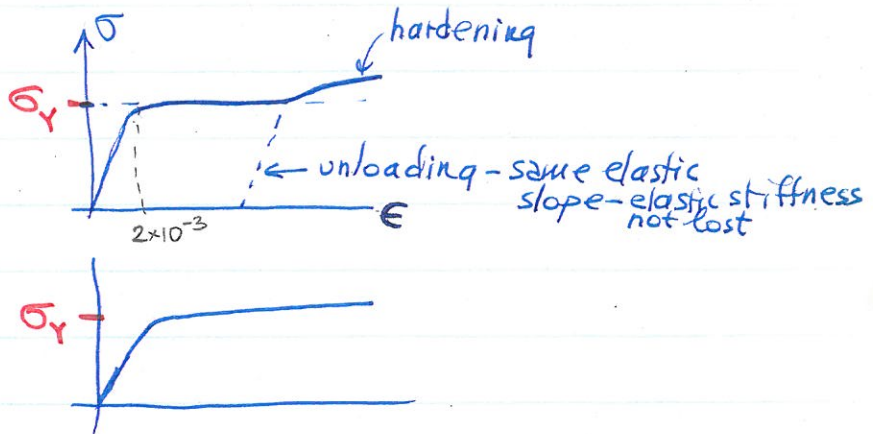 σ
hardening
σY
← unloading - same elastic
slope - elastic stiffness
not lost
ϵ
2×10⁻³
σY